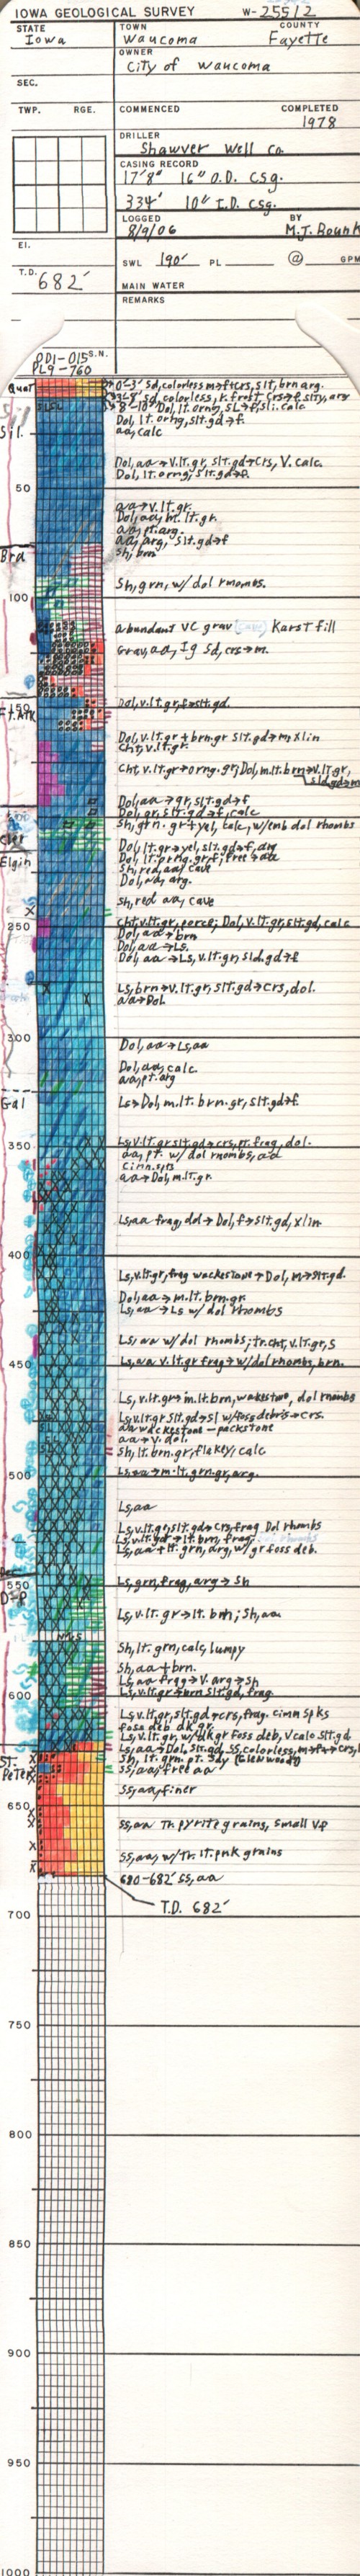 IOWA GEOLOGICAL SURVEY W-25512
STATE
Iowa
TOWN
Waucoma
COUNTY
Fayette
OWNER
City of Waucoma
SEC.
TWP. RGE.
COMMENCED
COMPLETED
1978
DRILLER
Shawver Well Co.
CASING RECORD
17'8" 16" O.D. Csg.
334' 10" I.D. Csg.
LOGGED
8/9/06
BY
M.J. Bounk
El.
SWL 190' PL @ GPM
T.D. 682'
MAIN WATER
REMARKS
S.N.
PL9-760
Quat
0-3' Sd, colorless, slt, brn arg.
8-10' Dol, lt. orng, SL→f, sli. calc
Dol, lt orng, slt.gd→f.
aa, calc
Sil.
Dol, aa→v.lt.gr, slt.gd→crs, V. calc.
Dol, lt orng, slt.gd→f.
50
aa→v.lt.gr.
Dol, aa, m.lt.gr.
aa, pt. arg.
aa, arg, slt.gd→f
Sh, brn
Bra
Sh, grn, w/ dol rhombs.
100
abundant VC grav (cave) Karst fill
Grav, aa, Ig Sd, crs→m.
Ft.Atk
150
Dol, v.lt.gr, f→slt.gd.
Dol, v.lt.gr + brn.gr slt.gd→m, xlin
Cht, v.lt.gr.
Cht, v.lt.gr→orng.gr; Dol, m.lt.brn→v.lt.gr, sld.gd→m
Dol, aa→gr, slt.gd→f
Dol, gr, slt.gd→f, calc
200
Sh, grn. gr + yel, calc, w/emb dol rhombs
Cler
Dol, lt.gr→yel, slt.gd→f, arg
Elgin
Sh, red, aa, cave
Dol, aa, arg.
Sh, red aa, cave
Cht, v.lt.gr, porce; Dol, v.lt.gr, slt.gd, calc
250
Dol, aa→brn
Dol, aa→Ls.
Dol, aa→Ls, v.lt.gr, sld.gd→f
Ls, brn→v.lt.gr, slt.gd→crs, dol.
aa→Dol
300
Dol, aa→Ls, aa
Dol, aa, calc.
aa, pt. arg
Gal
Ls→Dol, m.lt. brn.gr, slt.gd→f.
350
Ls, v.lt.gr slt.gd→crs, pt. frag, dol.
aa, pt. w/ dol rhombs, aa
Cinn. spts
aa→Dol, m.lt.gr.
Ls, aa frag, dol→Dol, f→slt.gd, xlin.
400
Ls, v.lt.gr, frag wackestone→Dol, m→slt.gd.
Dol, aa→m.lt.brn.gr.
Ls, aa→Ls w/ dol rhombs
Ls, aa w/ dol rhombs; tr. cht, v.lt.gr, S
450
Ls, aa v.lt.gr frag→w/dol rhombs, brn.
Ls, v.lt.gr→m.lt.brn, wakestone, dol rhombs
Ls, v.lt.gr slt.gd→Sl w/foss debris→crs.
aa wackestone – packstone
aa→v. dol.
Sh, lt. brn.gr, flakey, calc
500
Ls, aa→m.lt. grn.gr, arg.
Ls, aa
Ls, v.lt.gr, slt.gd→crs, frag Dol rhombs
Ls, v.lt.gr→lt. brn, frag.
Ls, aa + lt. grn, arg, w/gr foss deb.
550
Ls, grn, frag, arg→Sh
D-P
Ls, v.lt. gr→lt. brn; Sh, aa
Sh, lt. grn, calc, lumpy
Sh, aa + brn.
Ls, aa frag→V. arg→Sh
600
Ls, v.lt.gr+brn slt.gd, frag.
Ls, v.lt.gr, slt.gd→crs, frag. cinn Spks
foss deb dk gr.
Ls, v.lt.gr, w/dk gr foss deb, V calc slt.gd
Sh, lt. grn. pt. Sdy (Glenwood)
St. Peter
SS, aa, free aa
SS, aa, finer
650
SS, aa Tr. pyrite grains, small Vp
SS, aa, w/Tr. lt. pnk grains
680-682' SS, aa
T.D. 682'
700
750
800
850
900
950
1000